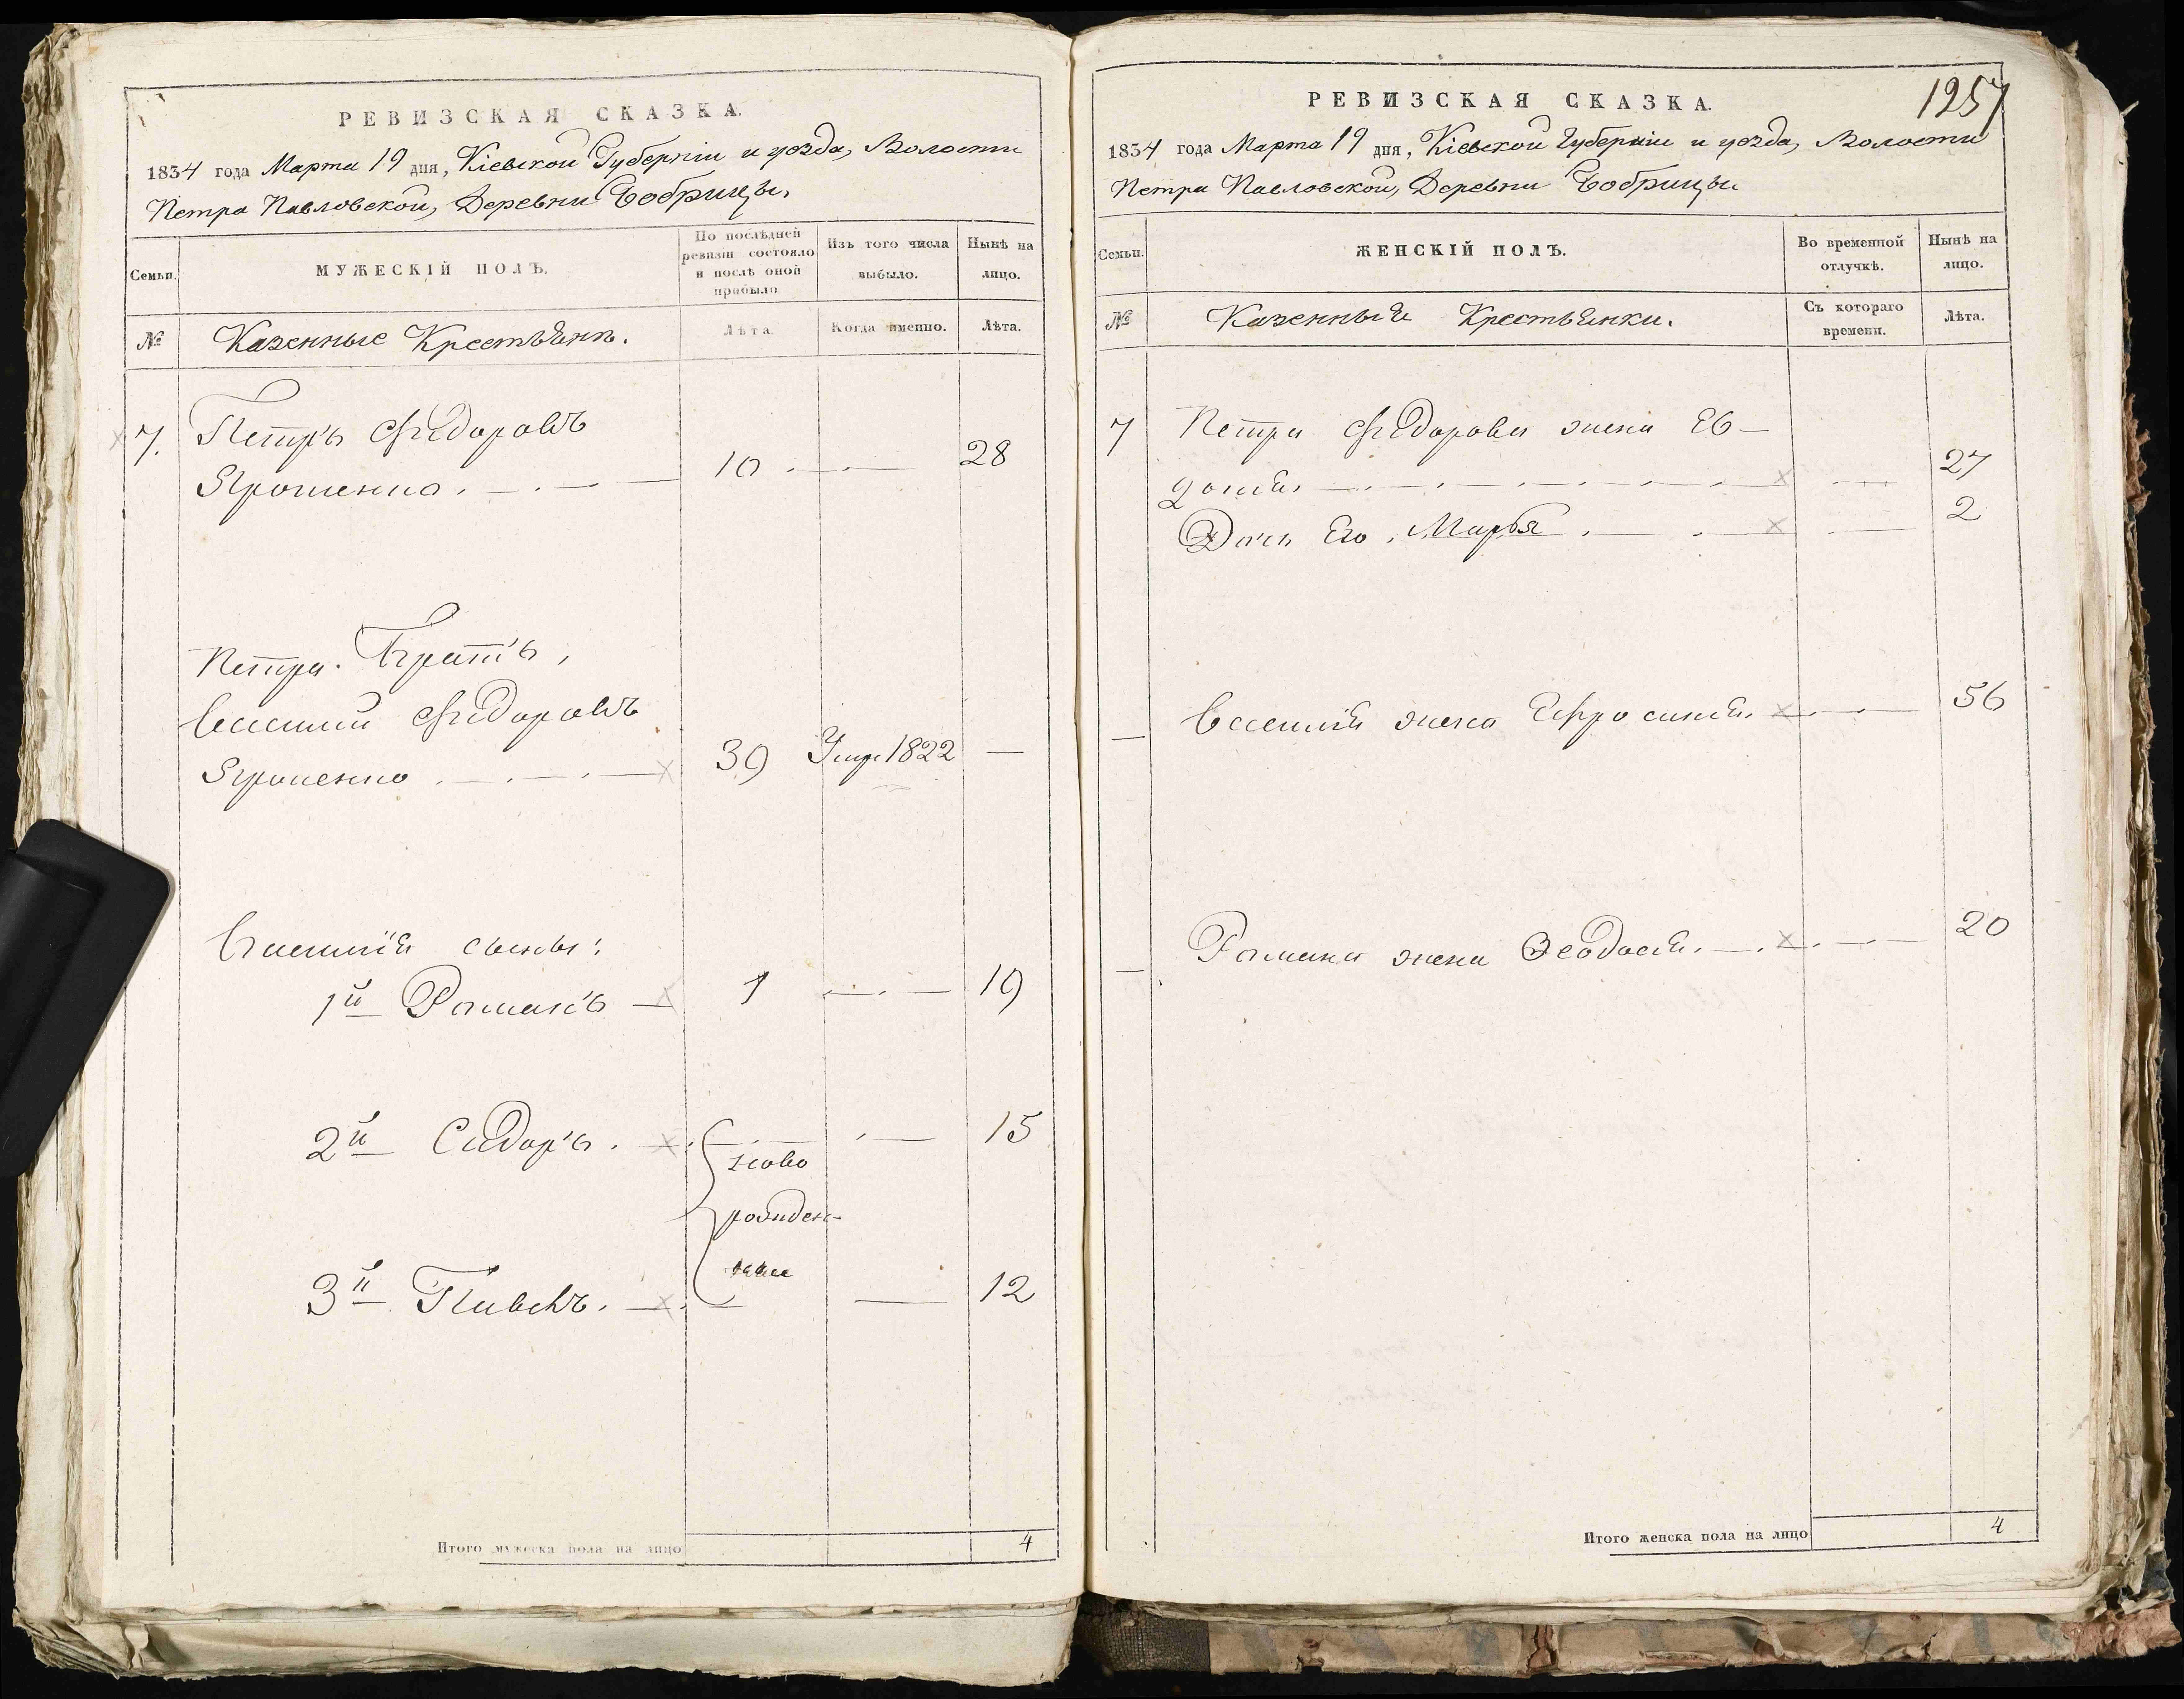 РЕВИЗСКАЯ СКАЗКА.
1834 года Марта 19 дня, Кіевской Губерніи и уезда, Волости
Петра Павловской, Деревни Бобрицы.
Семьи.
МУЖЕСКІЙ ПОЛЪ.
По послѣдней ревизіи состояло и послѣ оной прибыло.
Изъ того числа выбыло.
Нынѣ на лицо.
№
Казенные Крестьяне.
Лѣта.
Когда именно.
Лѣта.
7. Петръ Фѣдоровъ
Ярошенко. 10 28
Петра Братъ,
Василий Фѣдоровъ
Ярошенко 39 Умре 1822 —
Василія сыны:
1й Романъ 1 19
2й Сидоръ. 15
ново
рожден-
ные
3й Павелъ. 12
Итого мужеска пола на лицо 4
1257
РЕВИЗСКАЯ СКАЗКА.
1834 года Марта 19 дня, Кіевской Губерніи и уезда, Волости
Петра Павловской, Деревни Бобрицы
Семьи.
ЖЕНСКІЙ ПОЛЪ.
Во временной отлучкѣ.
Нынѣ на лицо.
№
Казенныя Крестьянки.
Съ котораго времени.
Лѣта.
7 Петра Фѣдорова жена Ев-
докія 27
Дочь Его, Марья 2
— Василія жена Ефросинія 56
— Романа жена Ѳеодосія 20
Итого женска пола на лицо 4